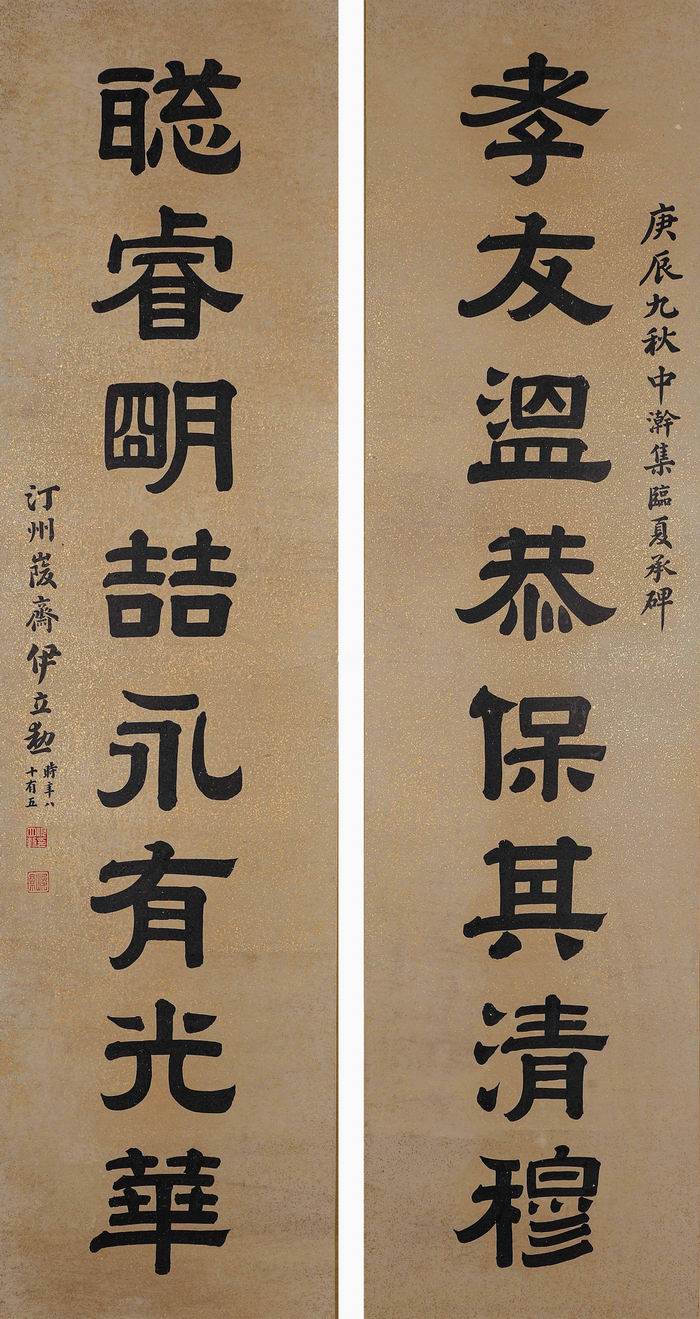 庚辰九秋中澣集臨夏承碑
孝友溫恭保其清穆
聡睿朙喆永有光華
汀州峻齋伊立勲
時年八
十有五